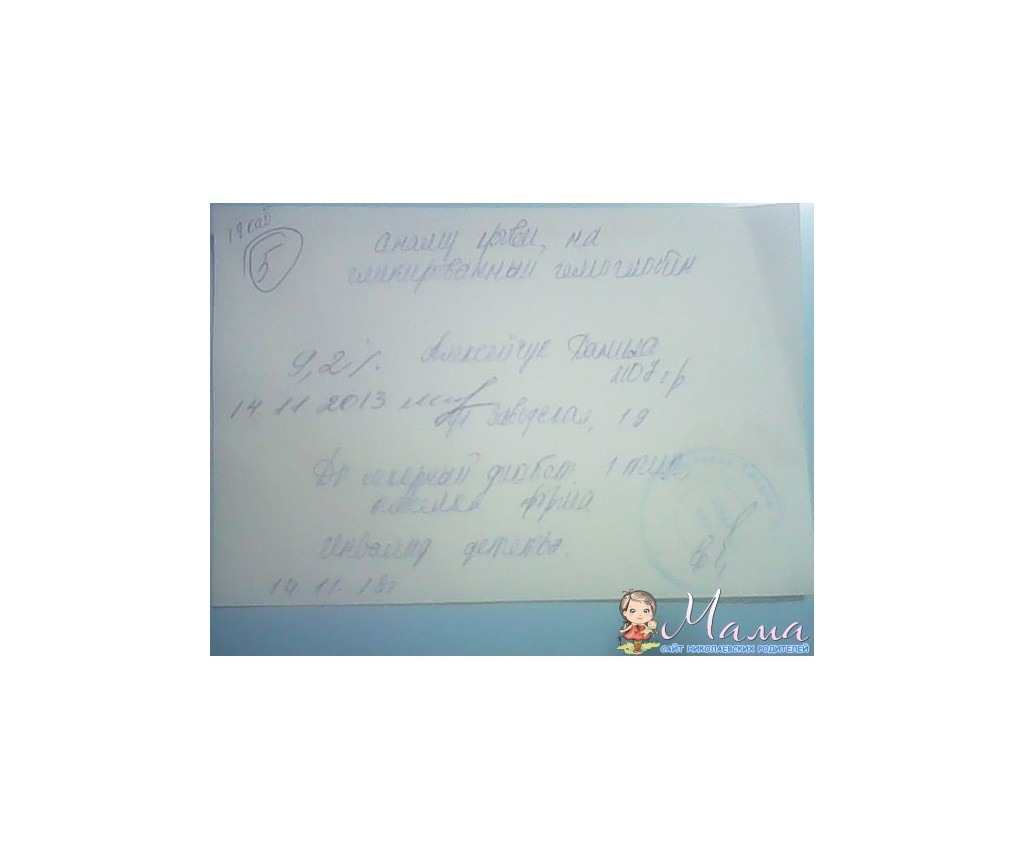 19 каб
5
анализ крови, на
гликированный гемоглобин
9,2%. Алексейчук Данила
2107 гр
14 11 2013
ул Заводская, 19
Ds сахарный диабет 1 тип,
форма
Инвалид детства.
14. 11. 13г
Мама
САЙТ НИКОЛАЕВСКИХ РОДИТЕЛЕЙ